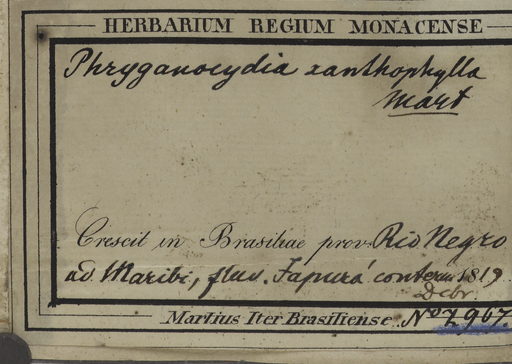 HERBARIUM REGIUM MONACENSE
Phryganocydia xanthophylla
Mart
Crescit in Brasiliae prov. Rio Negro
ad Maribi, fluv. Japurá 1819
Decbr.
Martius Iter Brasiliense. No 2967.